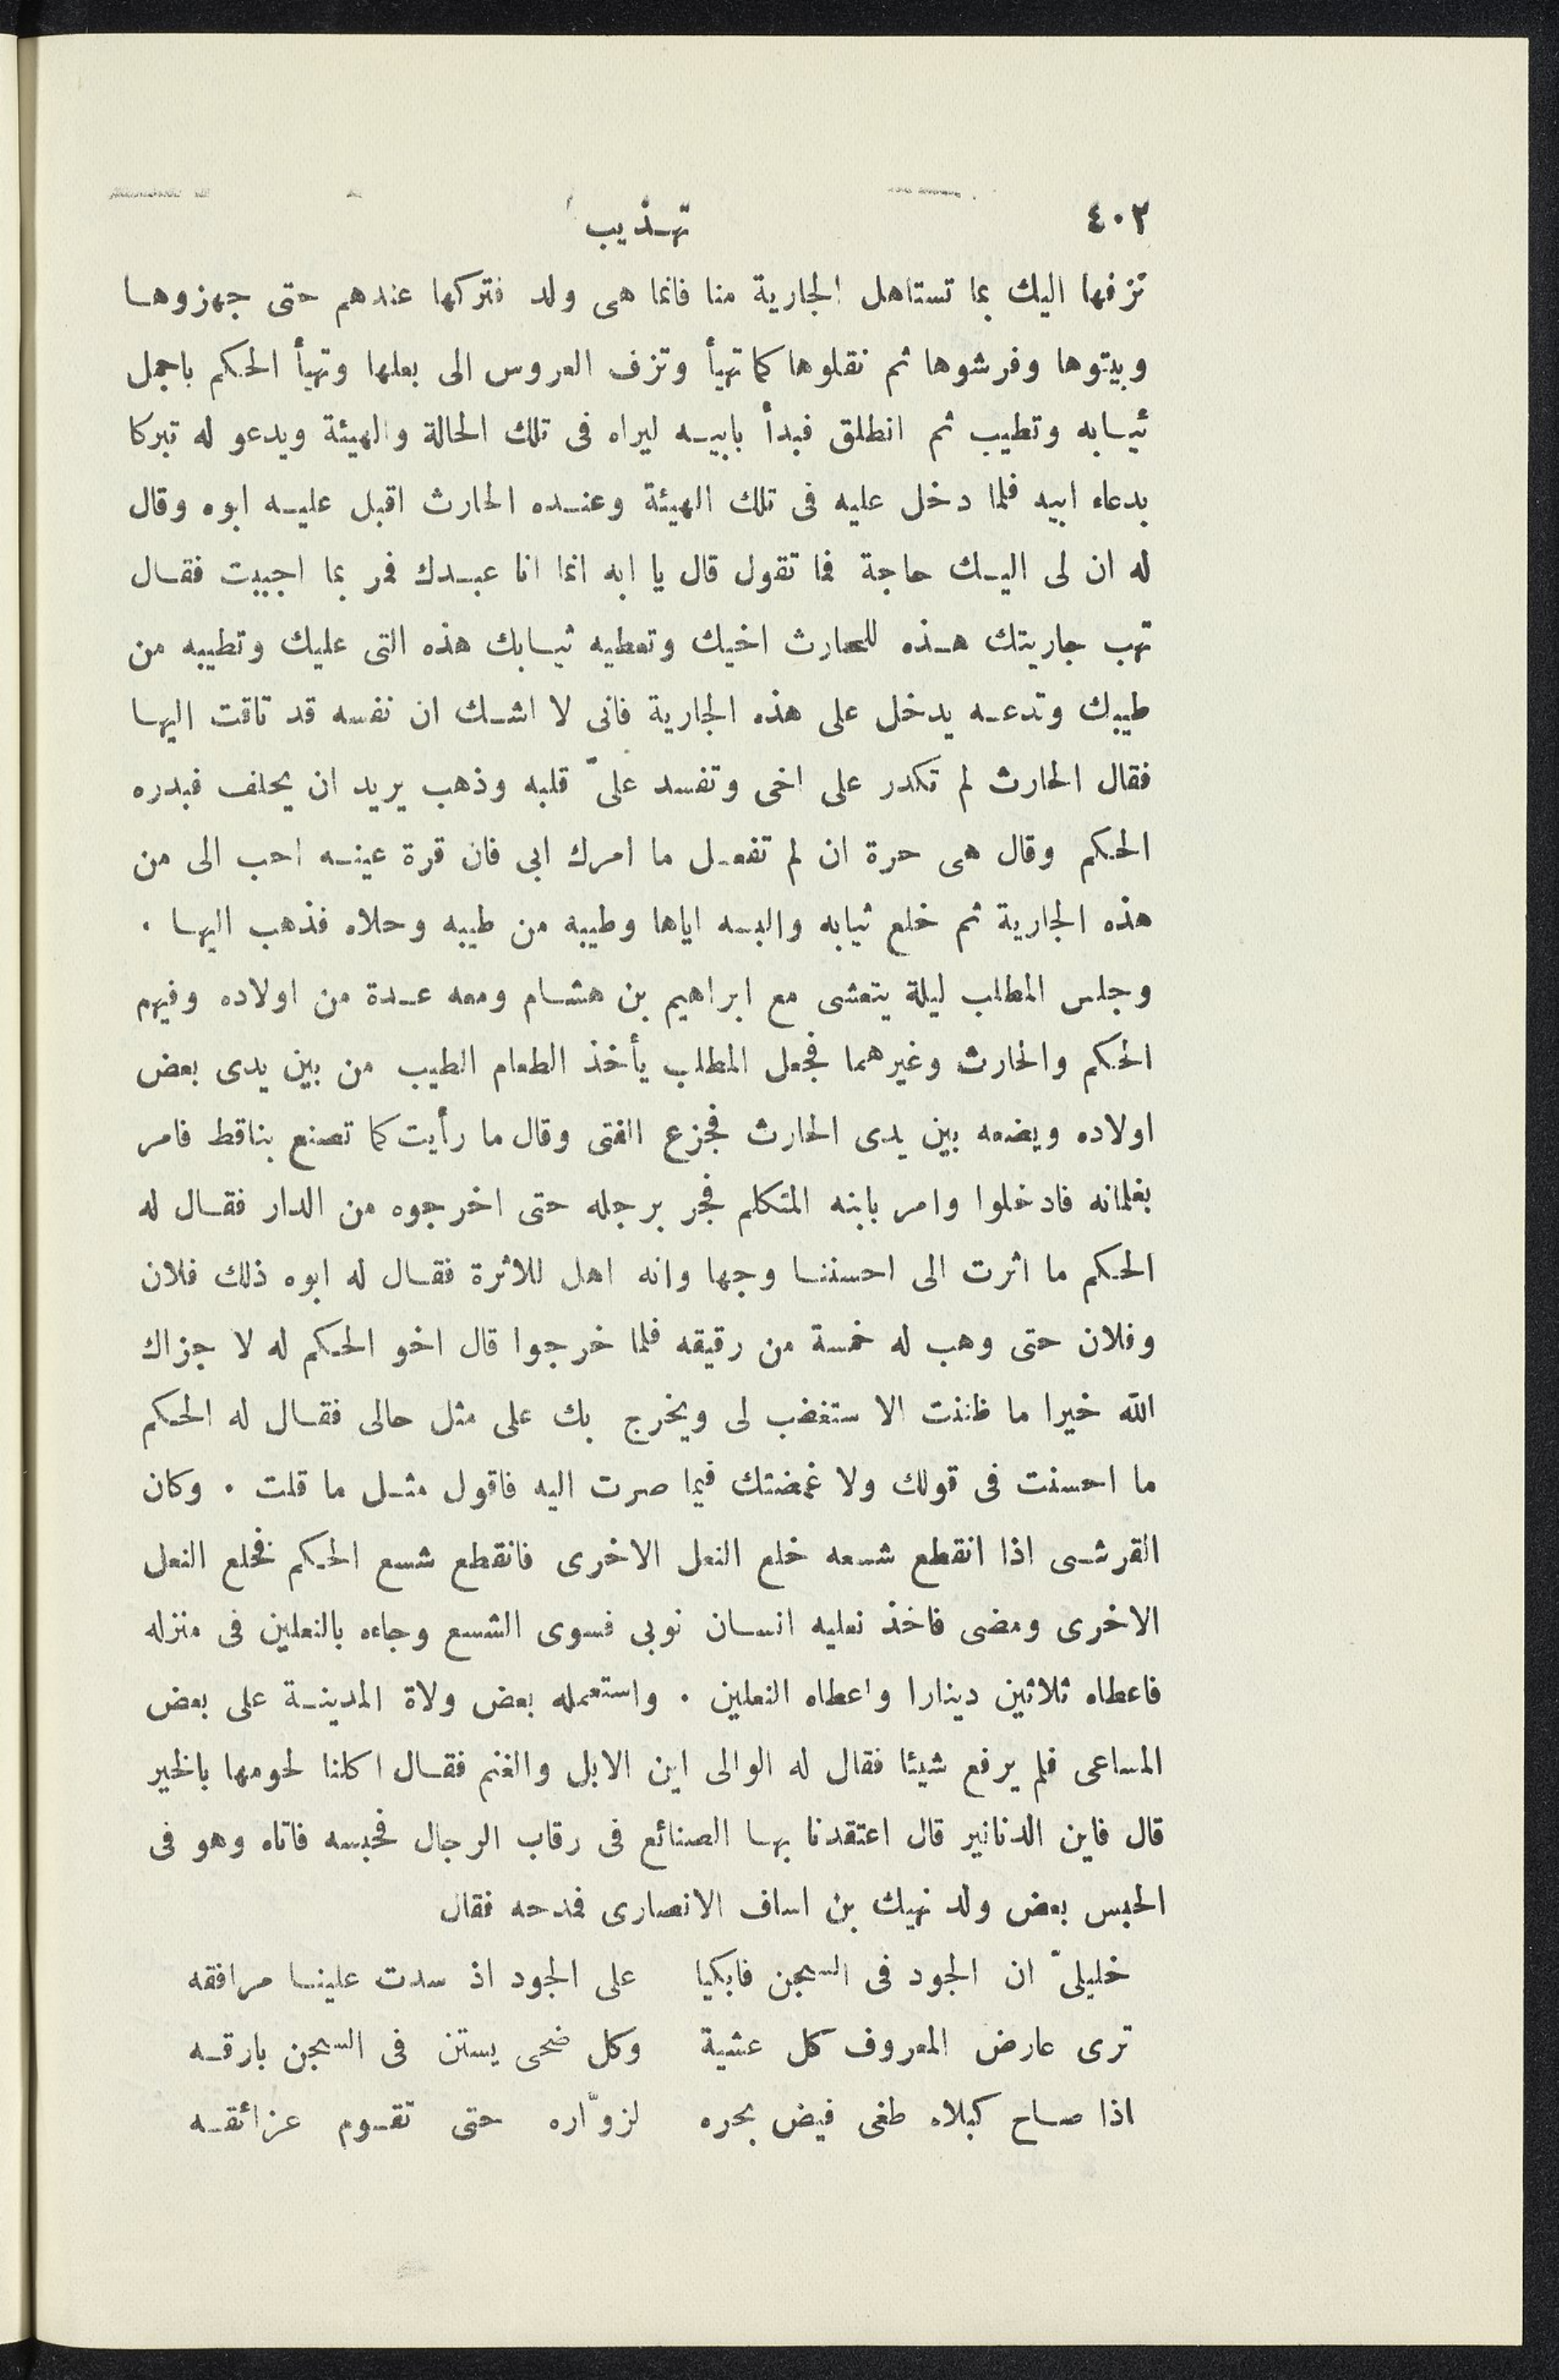 ٤٠٢ تهذيب
تزفها اليك بما تستاهل الجارية منا فانما هى ولد فتركها عندهم حتى جهزوها
وبيتوها وفرشوها ثم نقلوها كما تهيأ وتزف العروس الى بعلها وتهيأ الحكم باجمل
ثيابه وتطيب ثم انطلق فبدأ بابيه ليراه فى تلك الحالة والهيئة ويدعو له تبركا
بدعاء ابيه فلما دخل عليه فى تلك الهيئة وعنده الحارث اقبل عليه ابوه وقال
له ان لى اليك حاجة فما تقول قال يا ابه انما انا عبدك فمر بما احببت فقال
تهب جاريتك هذه للحارث اخيك وتعطيه ثيابك هذه التى عليك وتطيبه من
طيبك وتدعه يدخل على هذه الجارية فانى لا اشك ان نفسه قد تاقت اليها
فقال الحارث لم تكدر على اخى وتفسد علىّ قلبه وذهب يريد ان يحلف فبدره
الحكم وقال هى حرة ان لم تفعل ما امرك ابى فان قرة عينه احب الى من
هذه الجارية ثم خلع ثيابه والبسه اياها وطيبه من طيبه وحلاه فذهب اليها .
وجلس المطلب ليلة يتعشى مع ابراهيم بن هشام ومعه عدة من اولاده وفيهم
الحكم والحارث وغيرهما فجعل المطلب يأخذ الطعام الطيب من بين يدى بعض
اولاده ويضعه بين يدى الحارث فجزع الفتى وقال ما رأيت كما تصنع بناقط فامر
بغلمانه فادخلوا وامر بابنه المتكلم فجر برجله حتى اخرجوه من الدار فقال له
الحكم ما اثرت الى احسننا وجها وانه اهل للاثرة فقال له ابوه ذلك فلان
وفلان حتى وهب له خمسة من رقيقه فلما خرجوا قال اخو الحكم له لا جزاك
الله خيرا ما ظننت الا ستغضب لى ويخرج بك على مثل حالى فقال له الحكم
ما احسنت فى قولك ولا غمضتك فيما صرت اليه فاقول مثل ما قلت . وكان
القرشى اذا انقطع شسعه خلع النعل الاخرى فانقطع شسع الحكم فخلع النعل
الاخرى ومضى فاخذ نعليه انسان نوبى فسوى الشسع وجاءه بالنعلين فى منزله
فاعطاه ثلاثين دينارا واعطاه النعلين . واستعمله بعض ولاة المدينة على بعض
المساعى فلم يرفع شيئا فقال له الوالى اين الابل والغنم فقال اكلنا لحومها بالخبر
قال فاين الدنانير قال اعتقدنا بها الصنائع فى رقاب الرجال فحبسه فاتاه وهو فى
الحبس بعض ولد نهيك بن اساف الانصارى فمدحه فقال
خليلىّ ان الجود فى السجن فابكيا على الجود اذ سدت علينا مرافقه
ترى عارض المعروف كل عشية وكل ضحى يستن فى السجن بارقه
اذا صاح كبلاه طغى فيض بحره لزوّاره حتى تقوم عزائقه